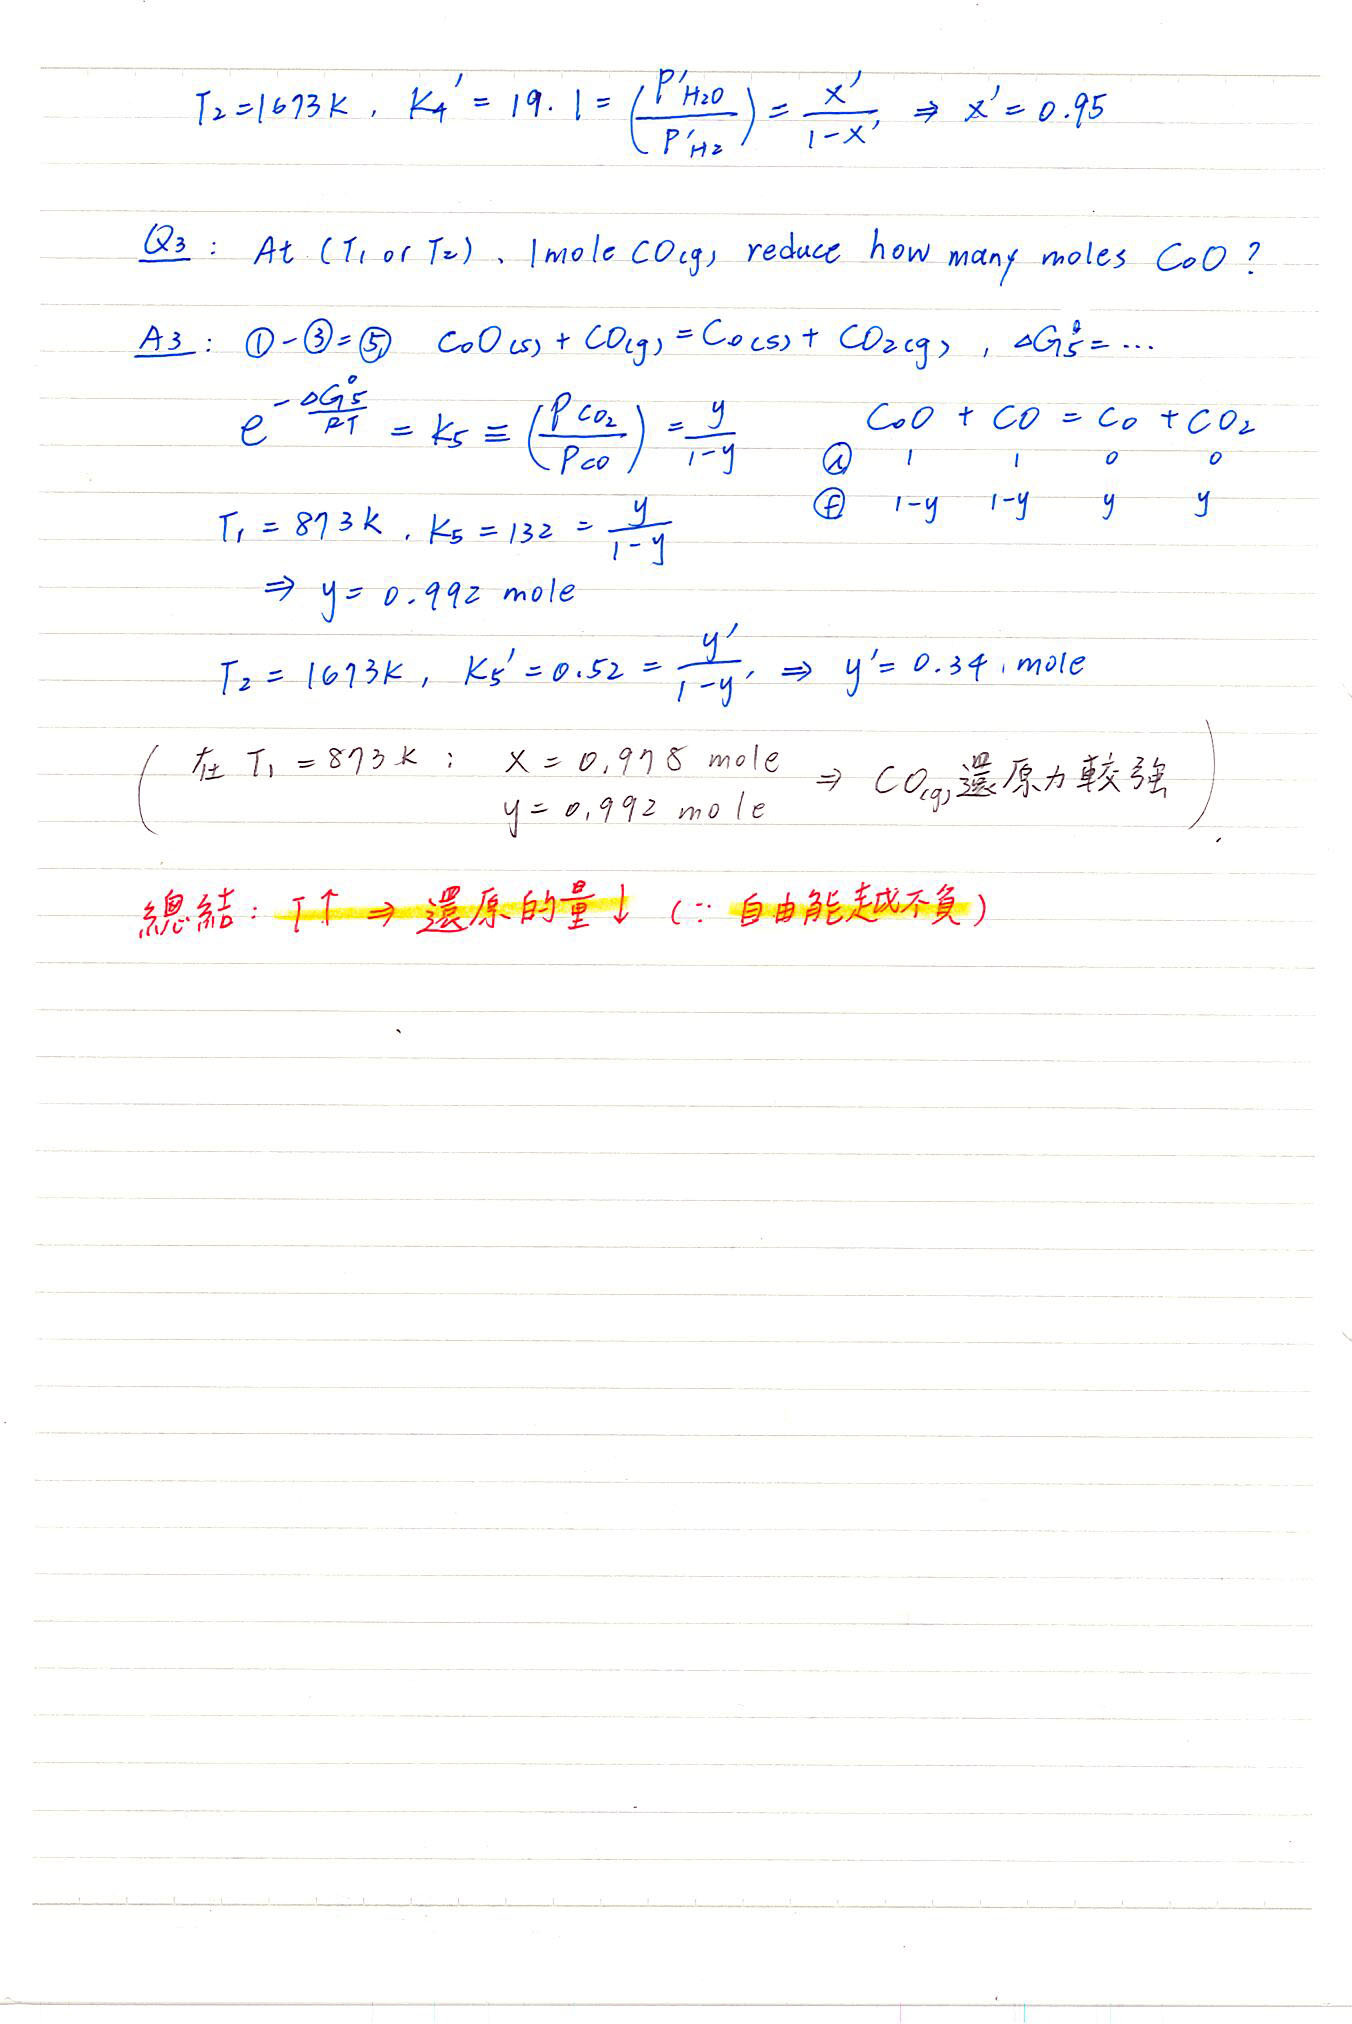 T₂=1673K, K₄' = 19.1 = (P'H₂O / P'H₂) = x' / 1-x' ⇒ x' = 0.95
Q3 : At (T₁ or T₂), 1mole CO(g) reduce how many moles CoO ?
A3 : ①-③=⑤ CoO(s) + CO(g) = Co(s) + CO₂(g) , ΔG₅° = ...
e^(-ΔG₅°/RT) = K₅ ≡ (PCO₂ / PCO) = y / 1-y
CoO + CO = Co + CO₂
ⓘ 1 1 0 0
ⓕ 1-y 1-y y y
T₁ = 873K, K₅ = 132 = y / 1-y
⇒ y = 0.992 mole
T₂ = 1673K, K₅' = 0.52 = y' / 1-y' ⇒ y' = 0.34 mole
(在 T₁ = 873K : x = 0.978 mole
y = 0.992 mole ⇒ CO(g)還原力較強)
總結: T↑ ⇒ 還原的量↓ (∵ 自由能越不負)